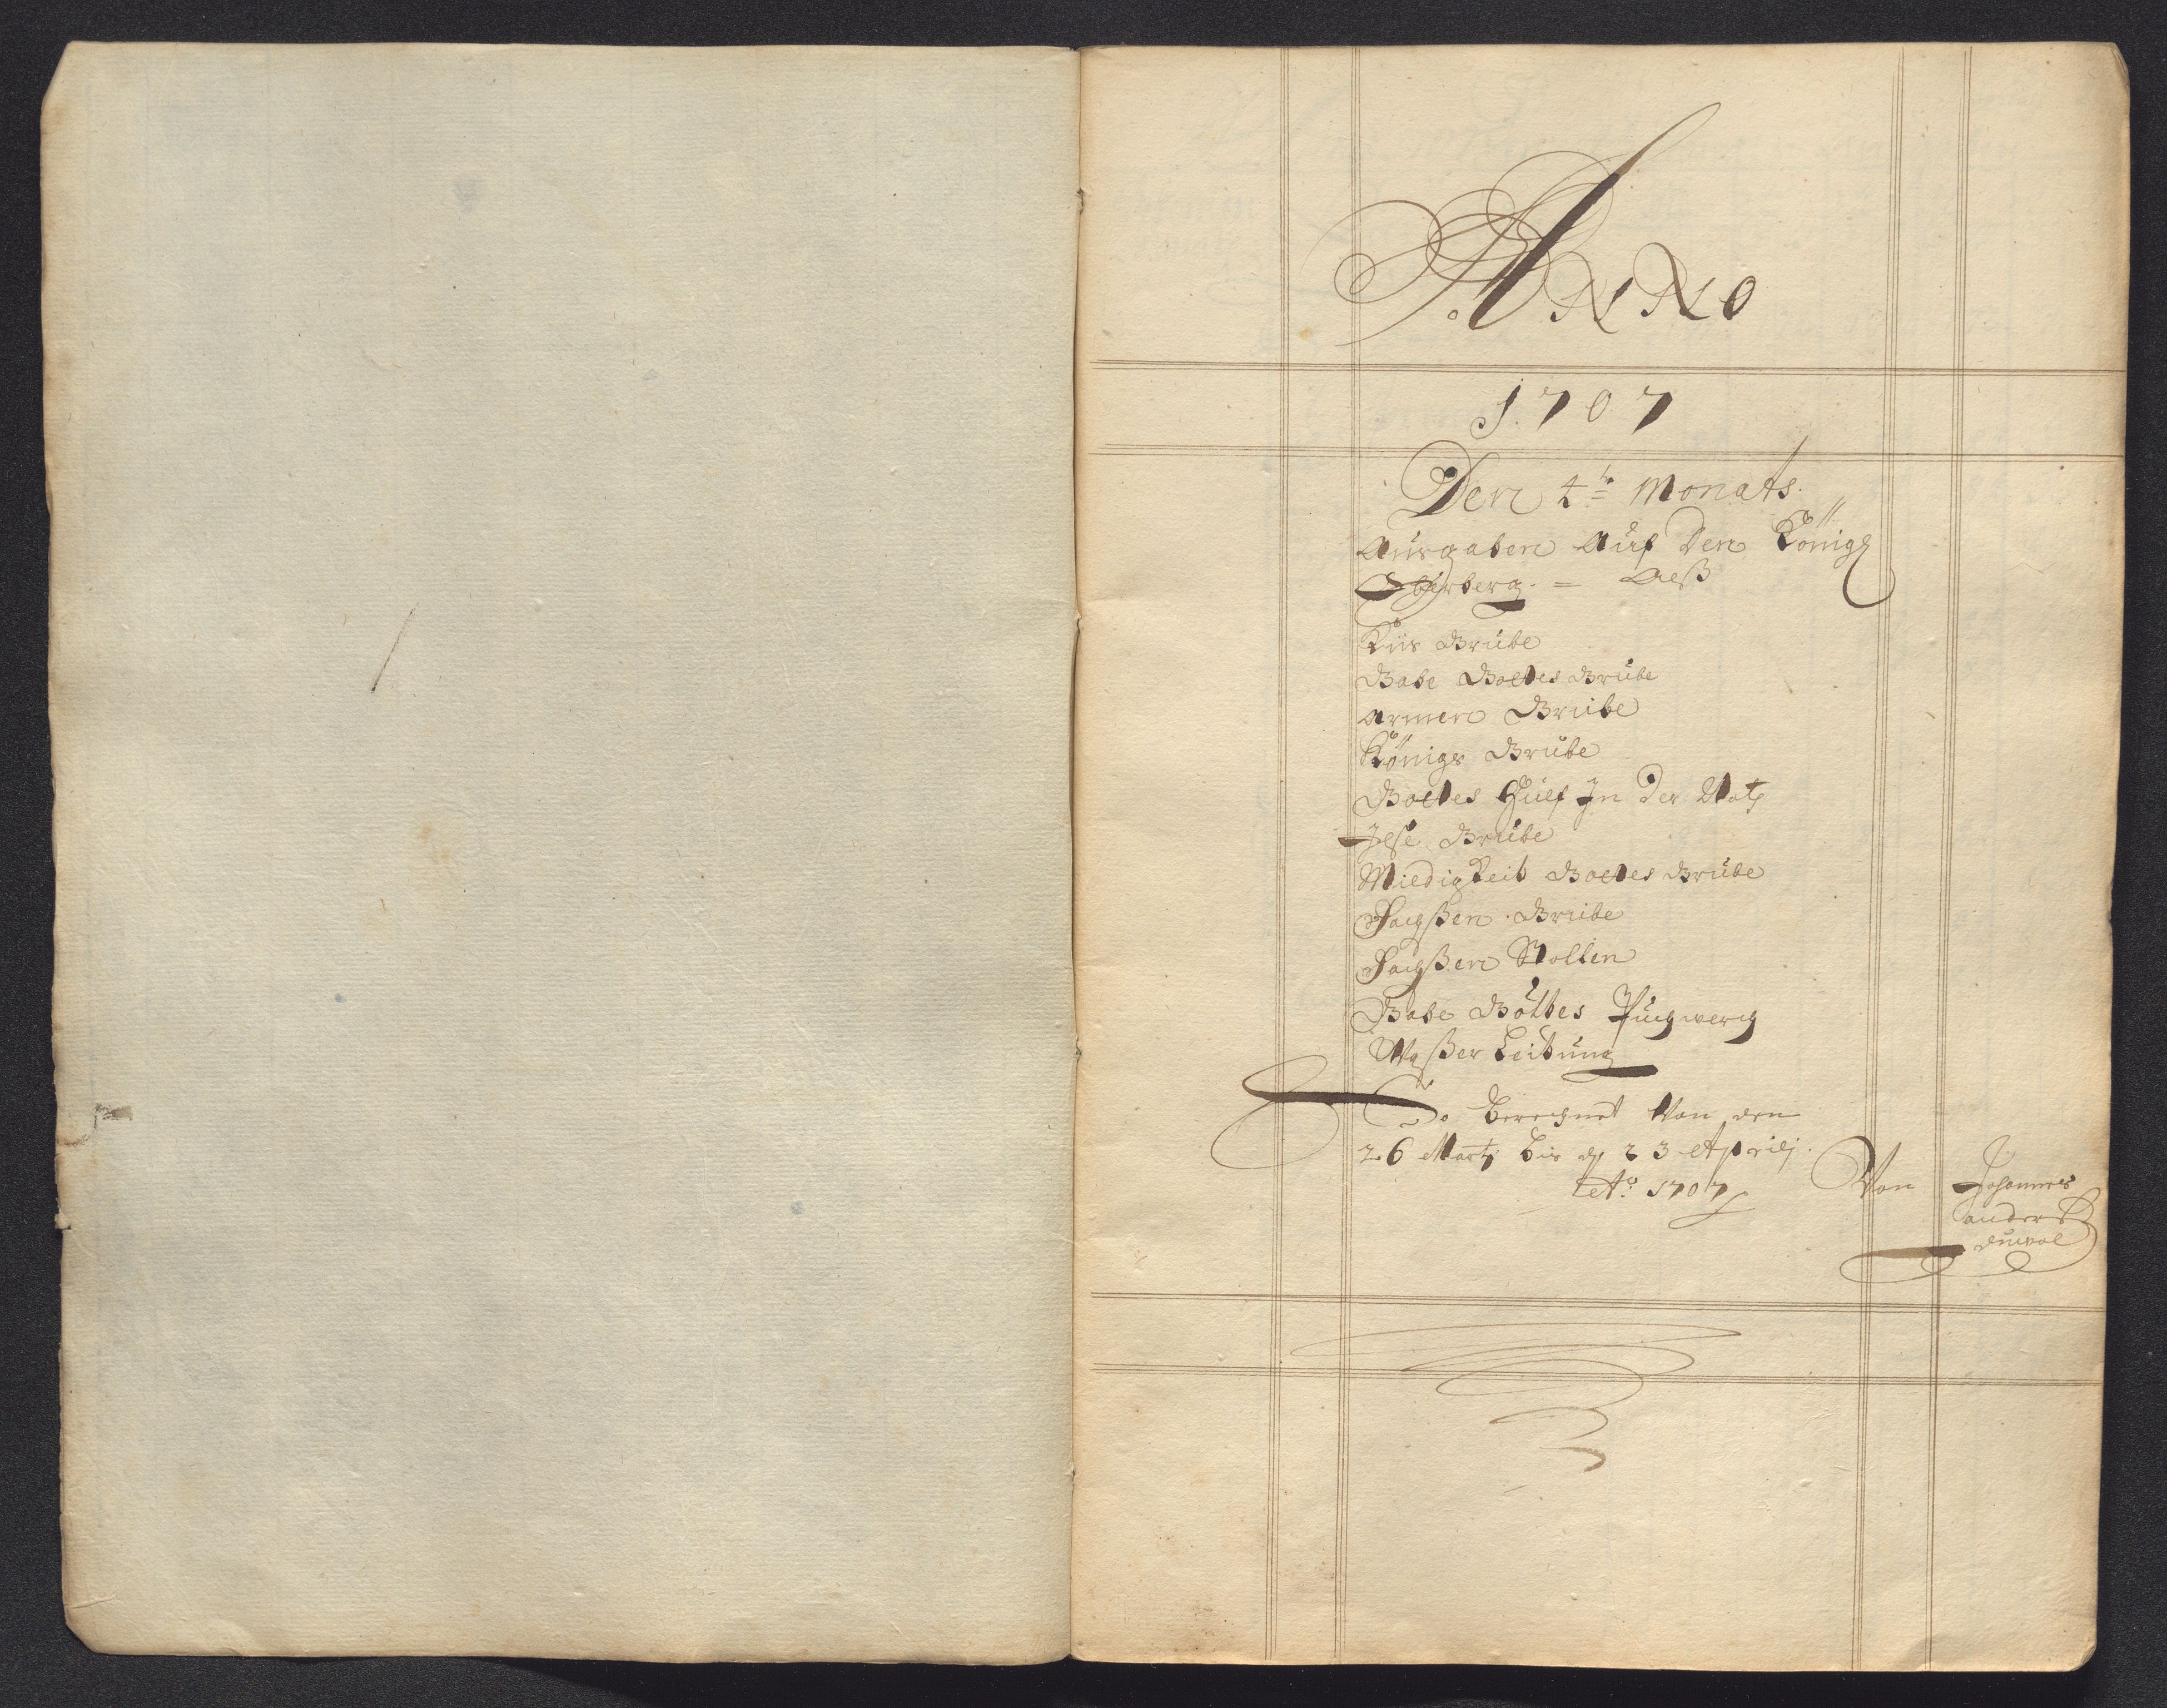 ANNO
1707
Den 4te Monats
Ausgaben Auf Den Königl
Oberberg. = Alß
Küs Grube
Gabe Gottes Grube
Armen Grube
Königs Grube
Gottes Hülf In der Noth
Grube
Mildigkeit Gottes Grube
Sachßen Grube
Sachßen Stollen
Gabe Gottes Puchwerch
Waßer Leitung
So berechnet Von den
26 Marty bis dn 23 Aprilj
Ao 1707
Von Johannes
Anders